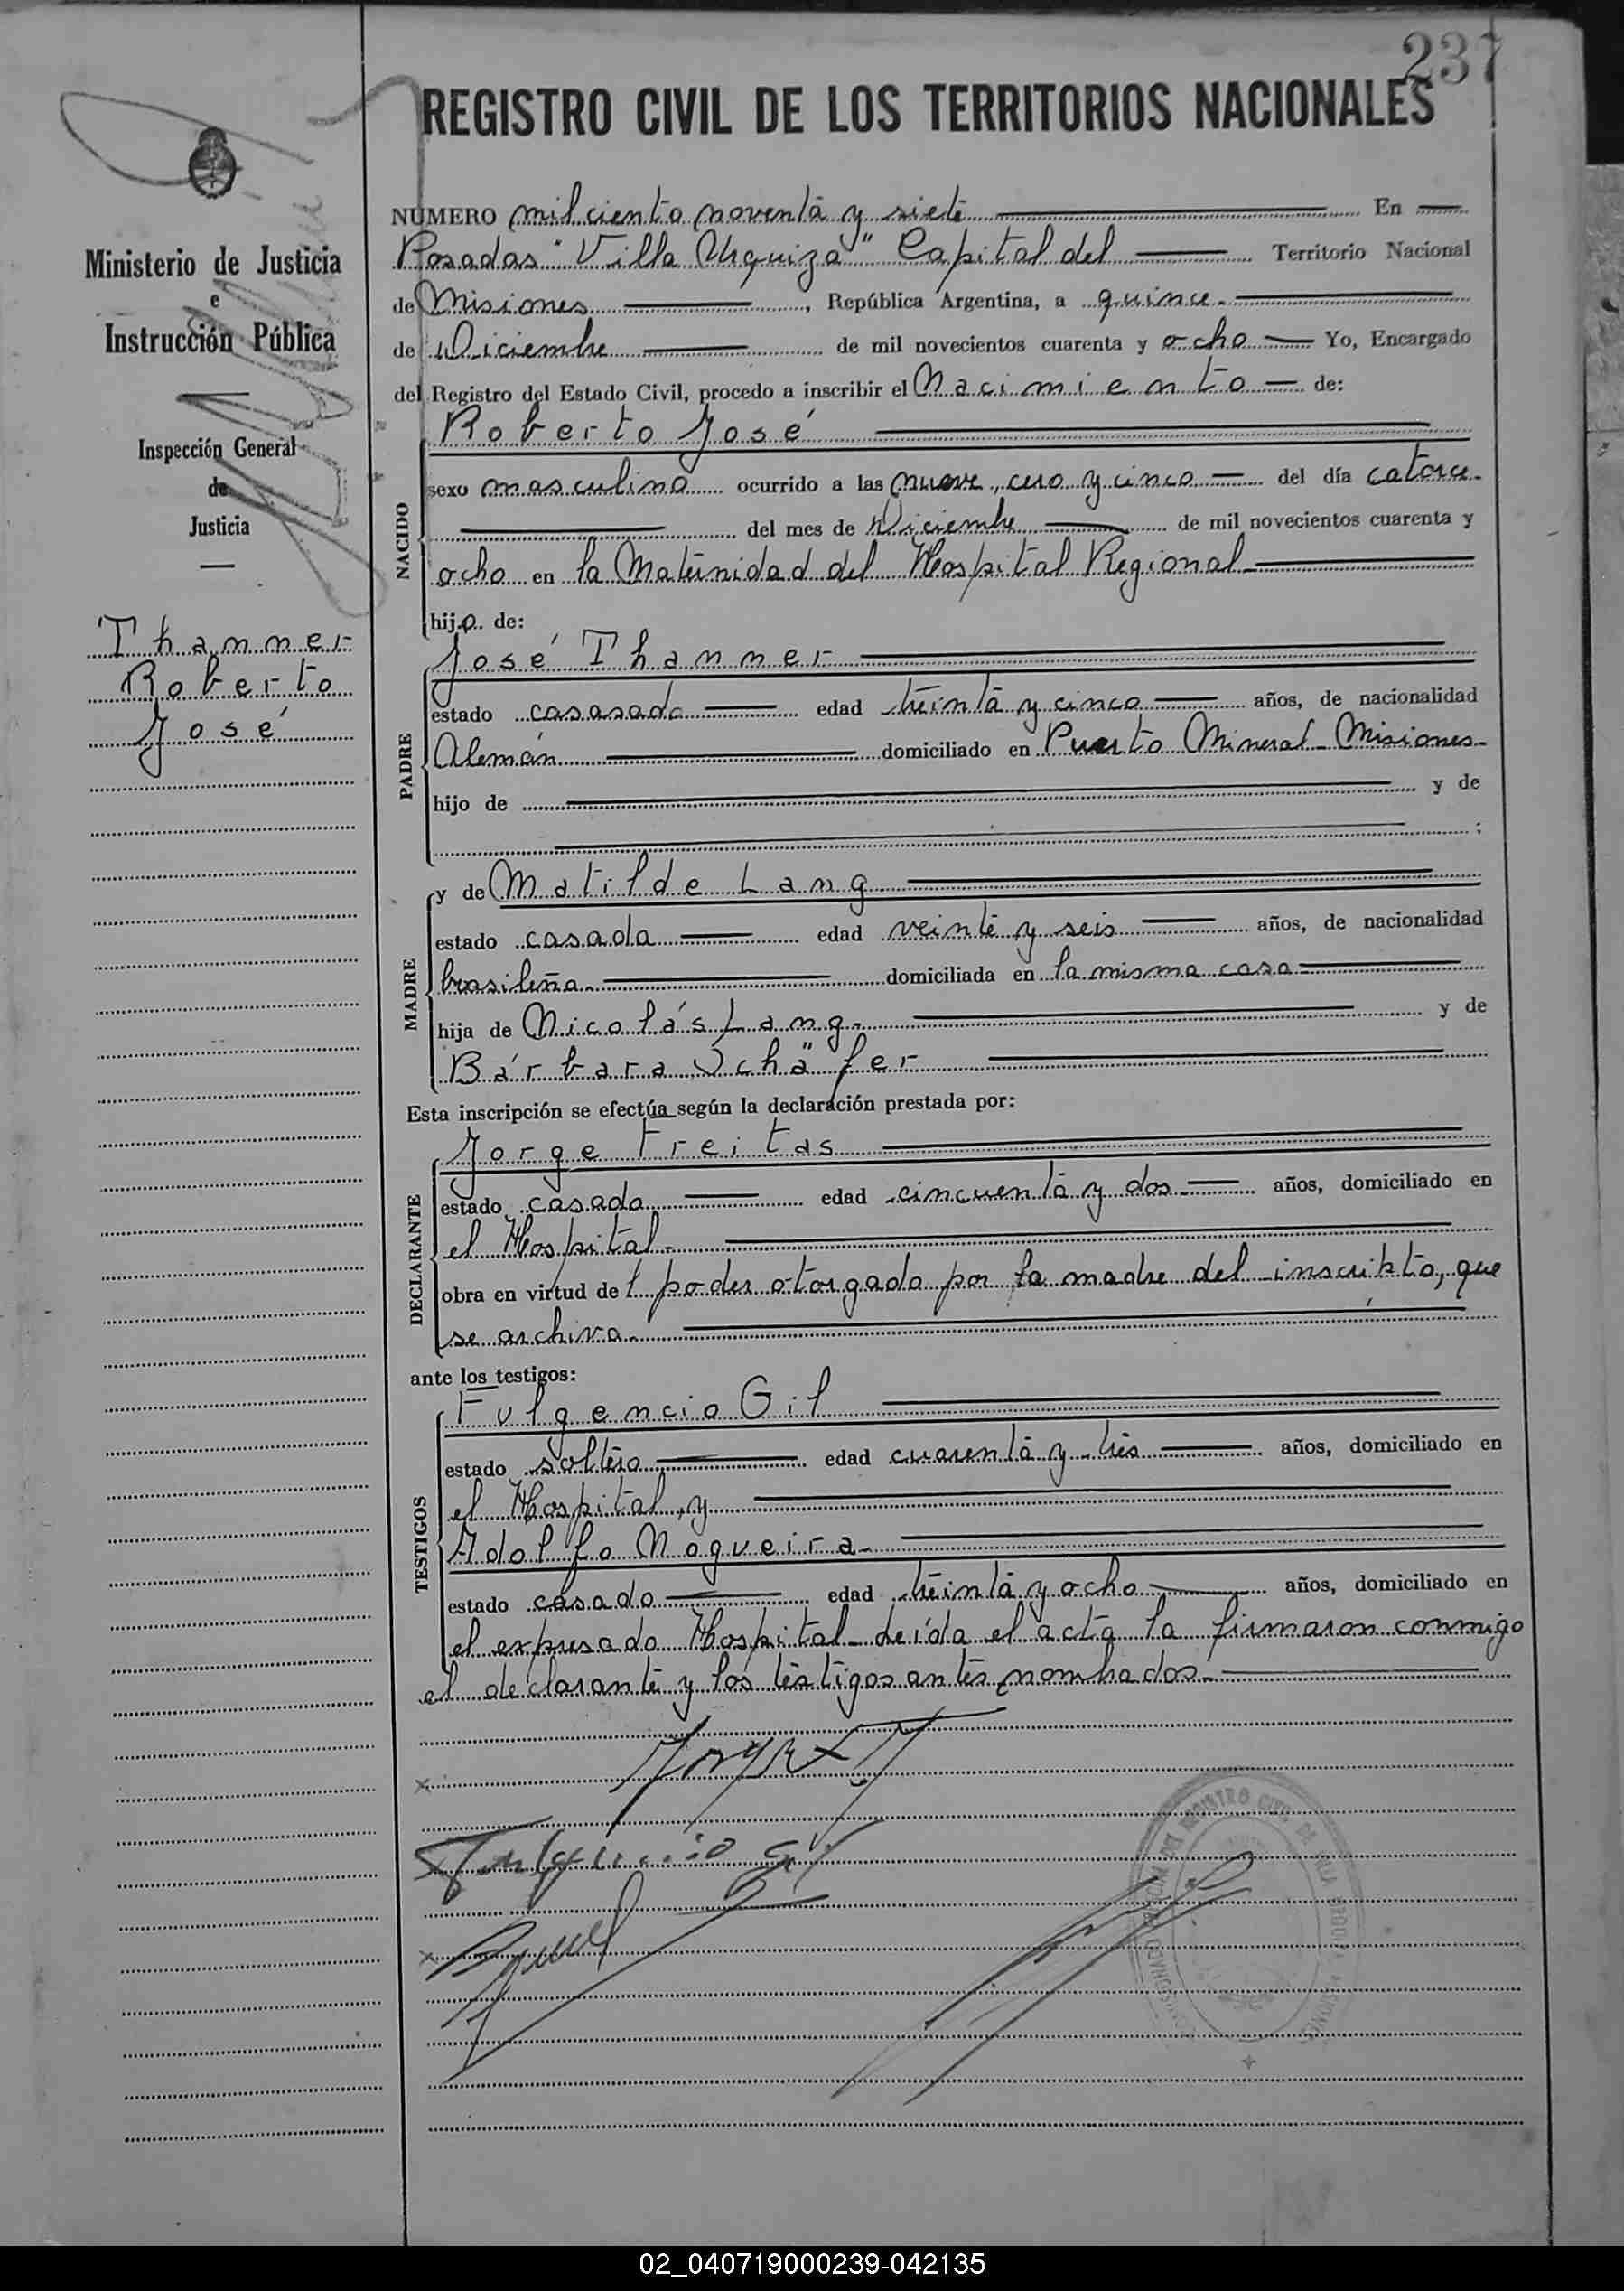 237
REGISTRO CIVIL DE LOS TERRITORIOS NACIONALES
Ministerio de Justicia
e
Instrucción Pública
Inspección General
de
Justicia
Thanner
Roberto
José
NUMERO mil ciento noventa y siete En
Posadas "Villa Urquiza" Capital del Territorio Nacional
de Misiones, República Argentina, a quince
de Diciembre de mil novecientos cuarenta y ocho Yo, Encargado
del Registro del Estado Civil, procedo a inscribir el Nacimiento de:
Roberto José
NACIDO
sexo masculino ocurrido a las nueve, cero y cinco del día catorce
del mes de Diciembre de mil novecientos cuarenta y
ocho en la Maternidad del Hospital Regional
hijo de:
José Thanner
PADRE
estado casasado edad treinta y cinco años, de nacionalidad
Alemán domiciliado en Puerto Mineral - Misiones-
hijo de y de
;
y de Matilde Lang
MADRE
estado casada edad veinte y seis años, de nacionalidad
brasileña domiciliada en la misma casa
hija de Nicolás Lang y de
Bárbara Schäfer
Esta inscripción se efectúa según la declaración prestada por:
Jorge Freitas
DECLARANTE
estado casado edad cincuenta y dos años, domiciliado en
el Hospital.
obra en virtud del poder otorgado por la madre del inscripto, que
se archiva.
ante los testigos:
Fulgencio Gil
TESTIGOS
estado soltero edad cuarenta y tres años, domiciliado en
el Hospital, y
Adolfo Nogueira
estado casado edad treinta y ocho años, domiciliado en
el expresado Hospital. Leída el acta la firmaron conmigo
el declarante y los testigos antes nombrados.
Fulgencio Gil
02_040719000239-042135